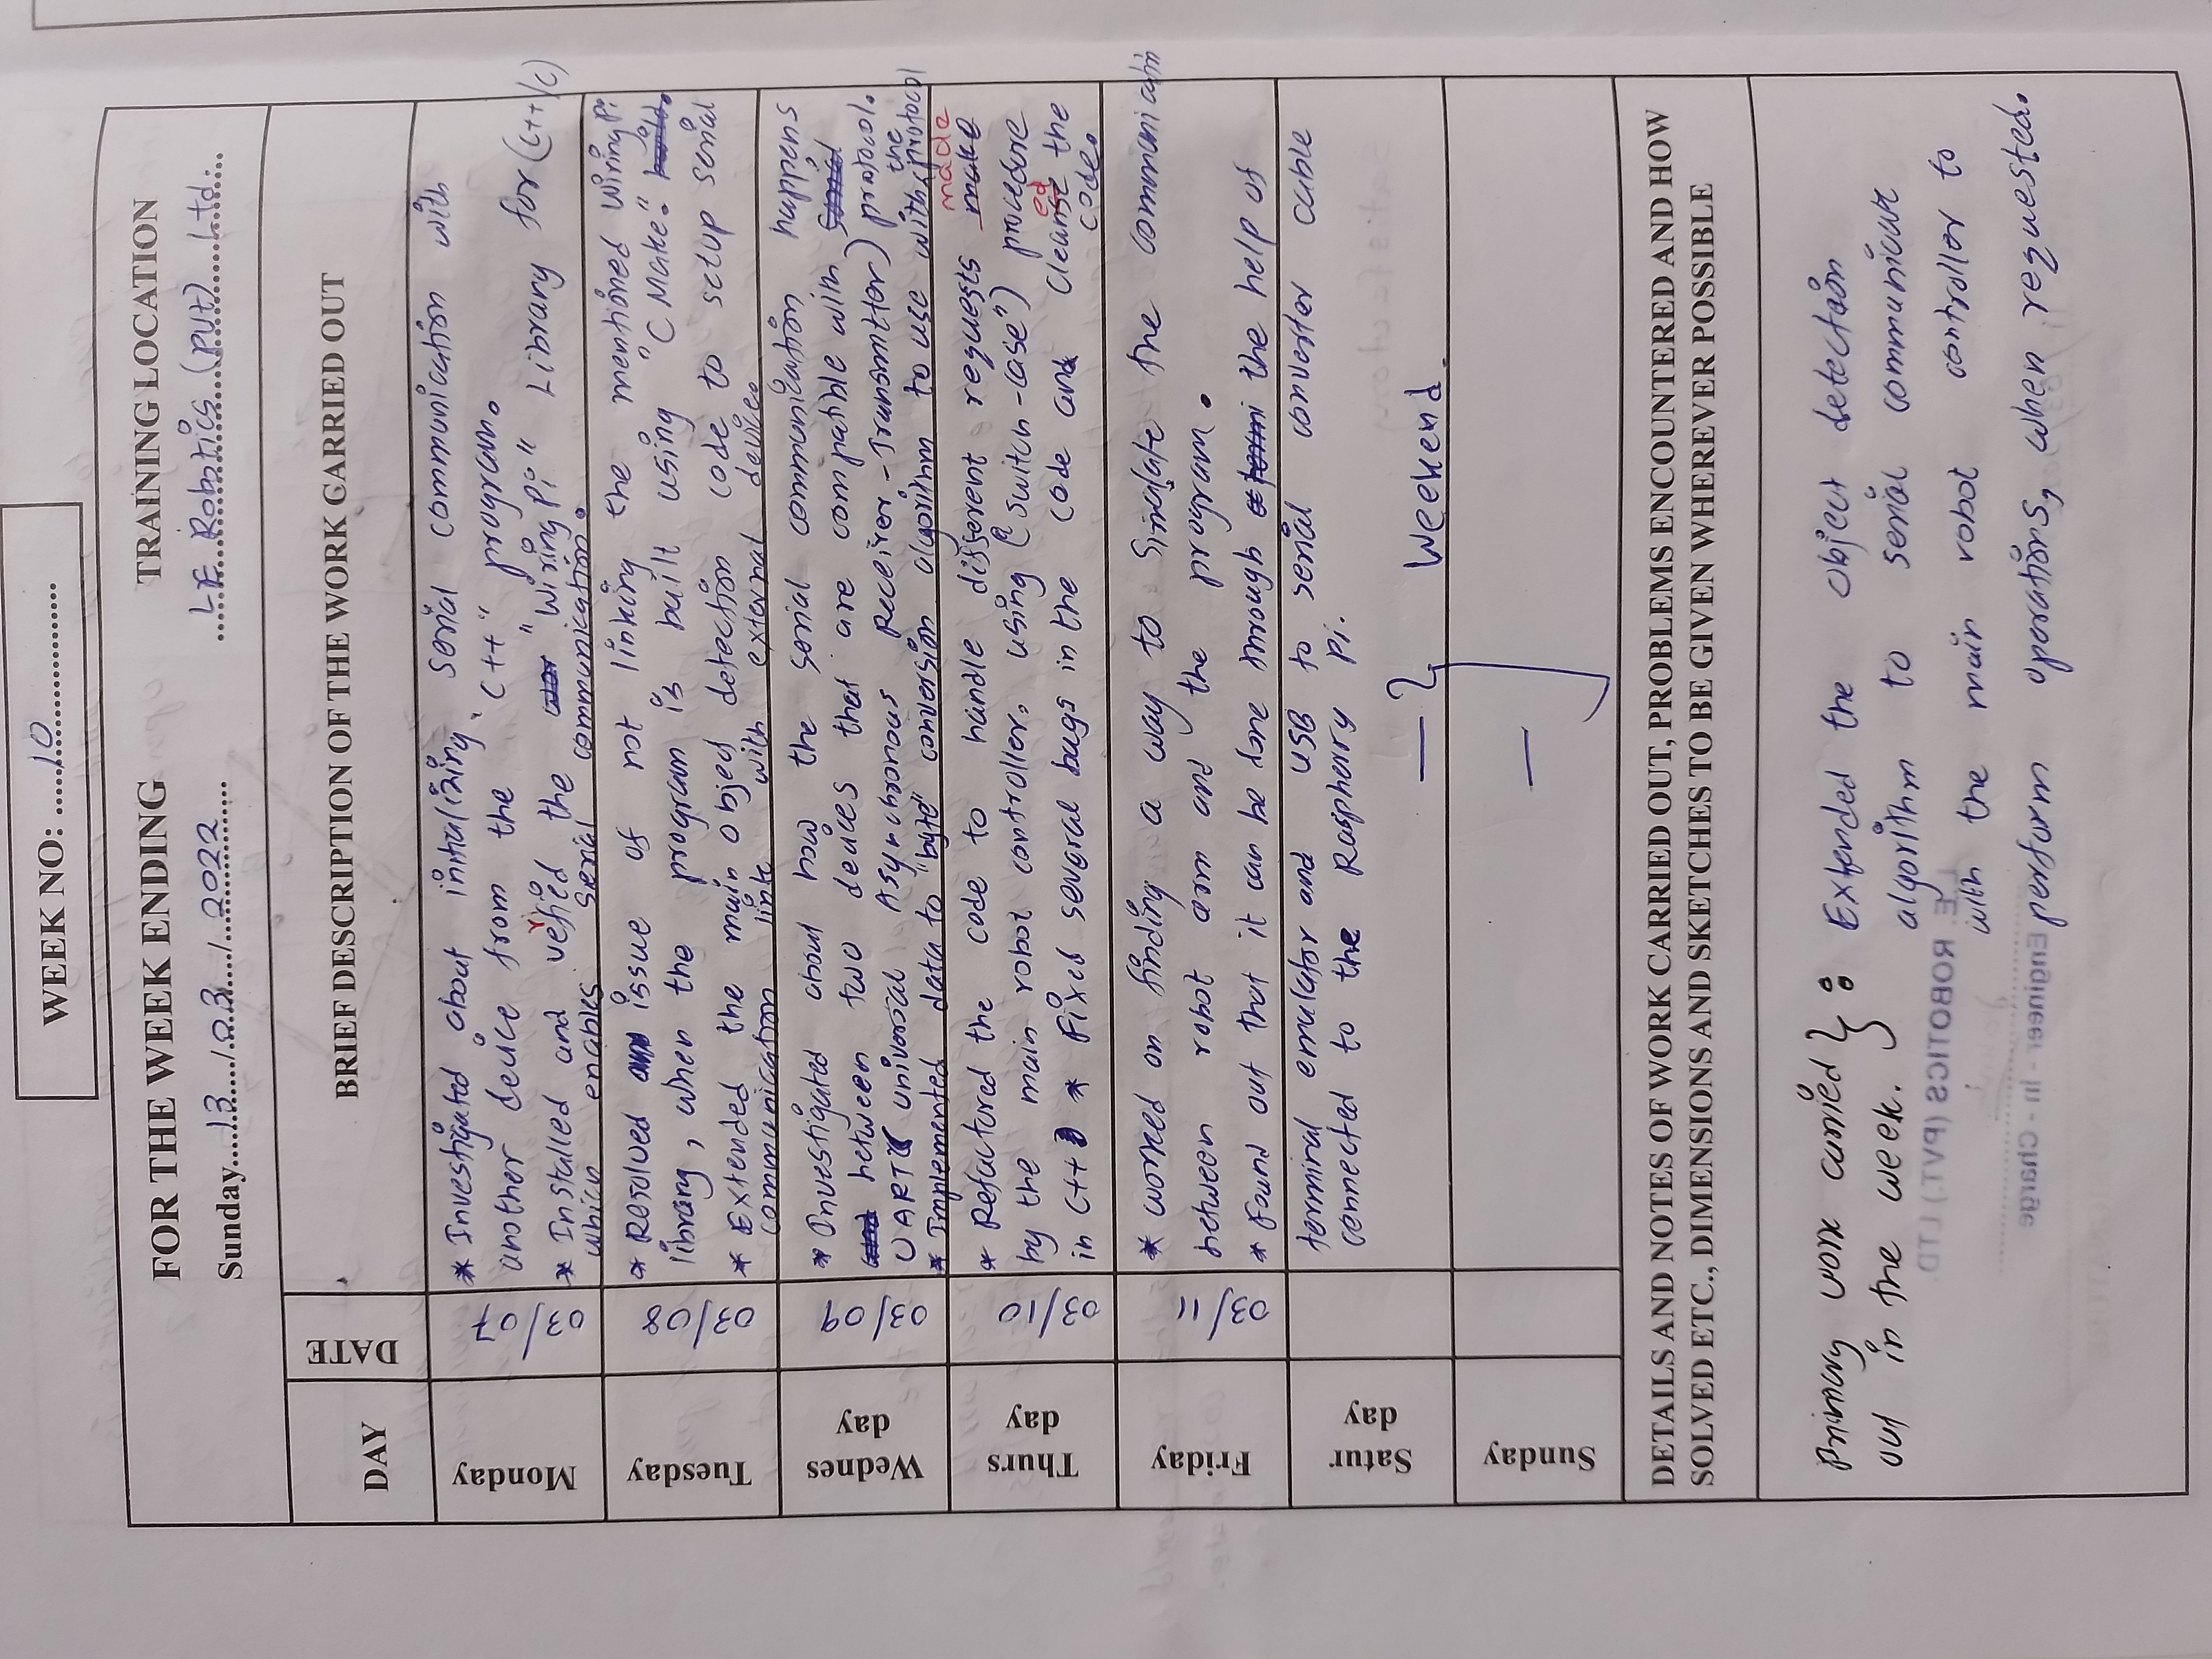 WEEK NO: .....10....................
FOR THE WEEK ENDING
Sunday.....13...../..03..../...2022.....
TRAINING LOCATION
LE Robotics (PVT) Ltd.
DAY
DATE
BRIEF DESCRIPTION OF THE WORK CARRIED OUT
Monday
03/07
* Investigated about initializing serial communication with
another device from the "C++" program.
* Installed and verified the "WiringPi" Library for (C++/C)
which enables serial communication.
Tuesday
03/08
* Resolved issue of not linking the mentioned WiringPi
library, when the program is built using "CMake". build.
* Extended the main object detection code to setup serial
communication link with external device.
Wednes
day
03/09
* Investigated about how the serial communication happens
and between two devices that are compatible with serial
UART( universal Asynchronous Receiver-Transmitter) protocol.
* Implemented data to "byte" conversion algorithm to use with the protocol
Thurs
day
03/10
made
* Refactured the code to handle different requests make
by the main robot controller. using ("switch-case") procedure
in C++ * Fixed several bugs in the code and cleaned the
code.
Friday
03/11
* worked on finding a way to Simulate the communicatin
between robot arm and the program.
* Found out that it can be done through a termi the help of
Satur
day
terminal emulator and USB to serial converter cable
connected to the Raspberry Pi.
Weekend.
Sunday
DETAILS AND NOTES OF WORK CARRIED OUT, PROBLEMS ENCOUNTERED AND HOW
SOLVED ETC., DIMENSIONS AND SKETCHES TO BE GIVEN WHEREVER POSSIBLE
Primary work carried
out in the week. :
Extended the object detection
algorithm to serial communicate
with the main robot controller to
perform operations, when requested.
L.E. ROBOTICS (PVT.) LTD.
Engineer - In - Charge